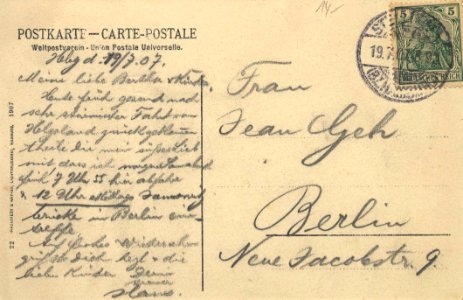 14.-
POSTKARTE – CARTE-POSTALE
Weltpostverein - Union Postale Universelle.
Hbg d. 19/7.07.
Meine liebe Bertha & Kinder
Heute früh gesund nach
sehr stürmischer Fahrt von
Helgoland zurückgekommen
theile dir mein
mit dass ich morgen
früh 7 Uhr 55 hier abfahre
& 12 Uhr Mittags
brücke in Berlin ein-
treffe
Auf frohes Wiedersehen
grüßt dich herzl & die
lieben Kinder Dein
Hans
Frau
Jean Geh
Berlin
Neue Jacobstr. 9.
5 5
19.7.07
DEUTSCHES REICH
22 1907